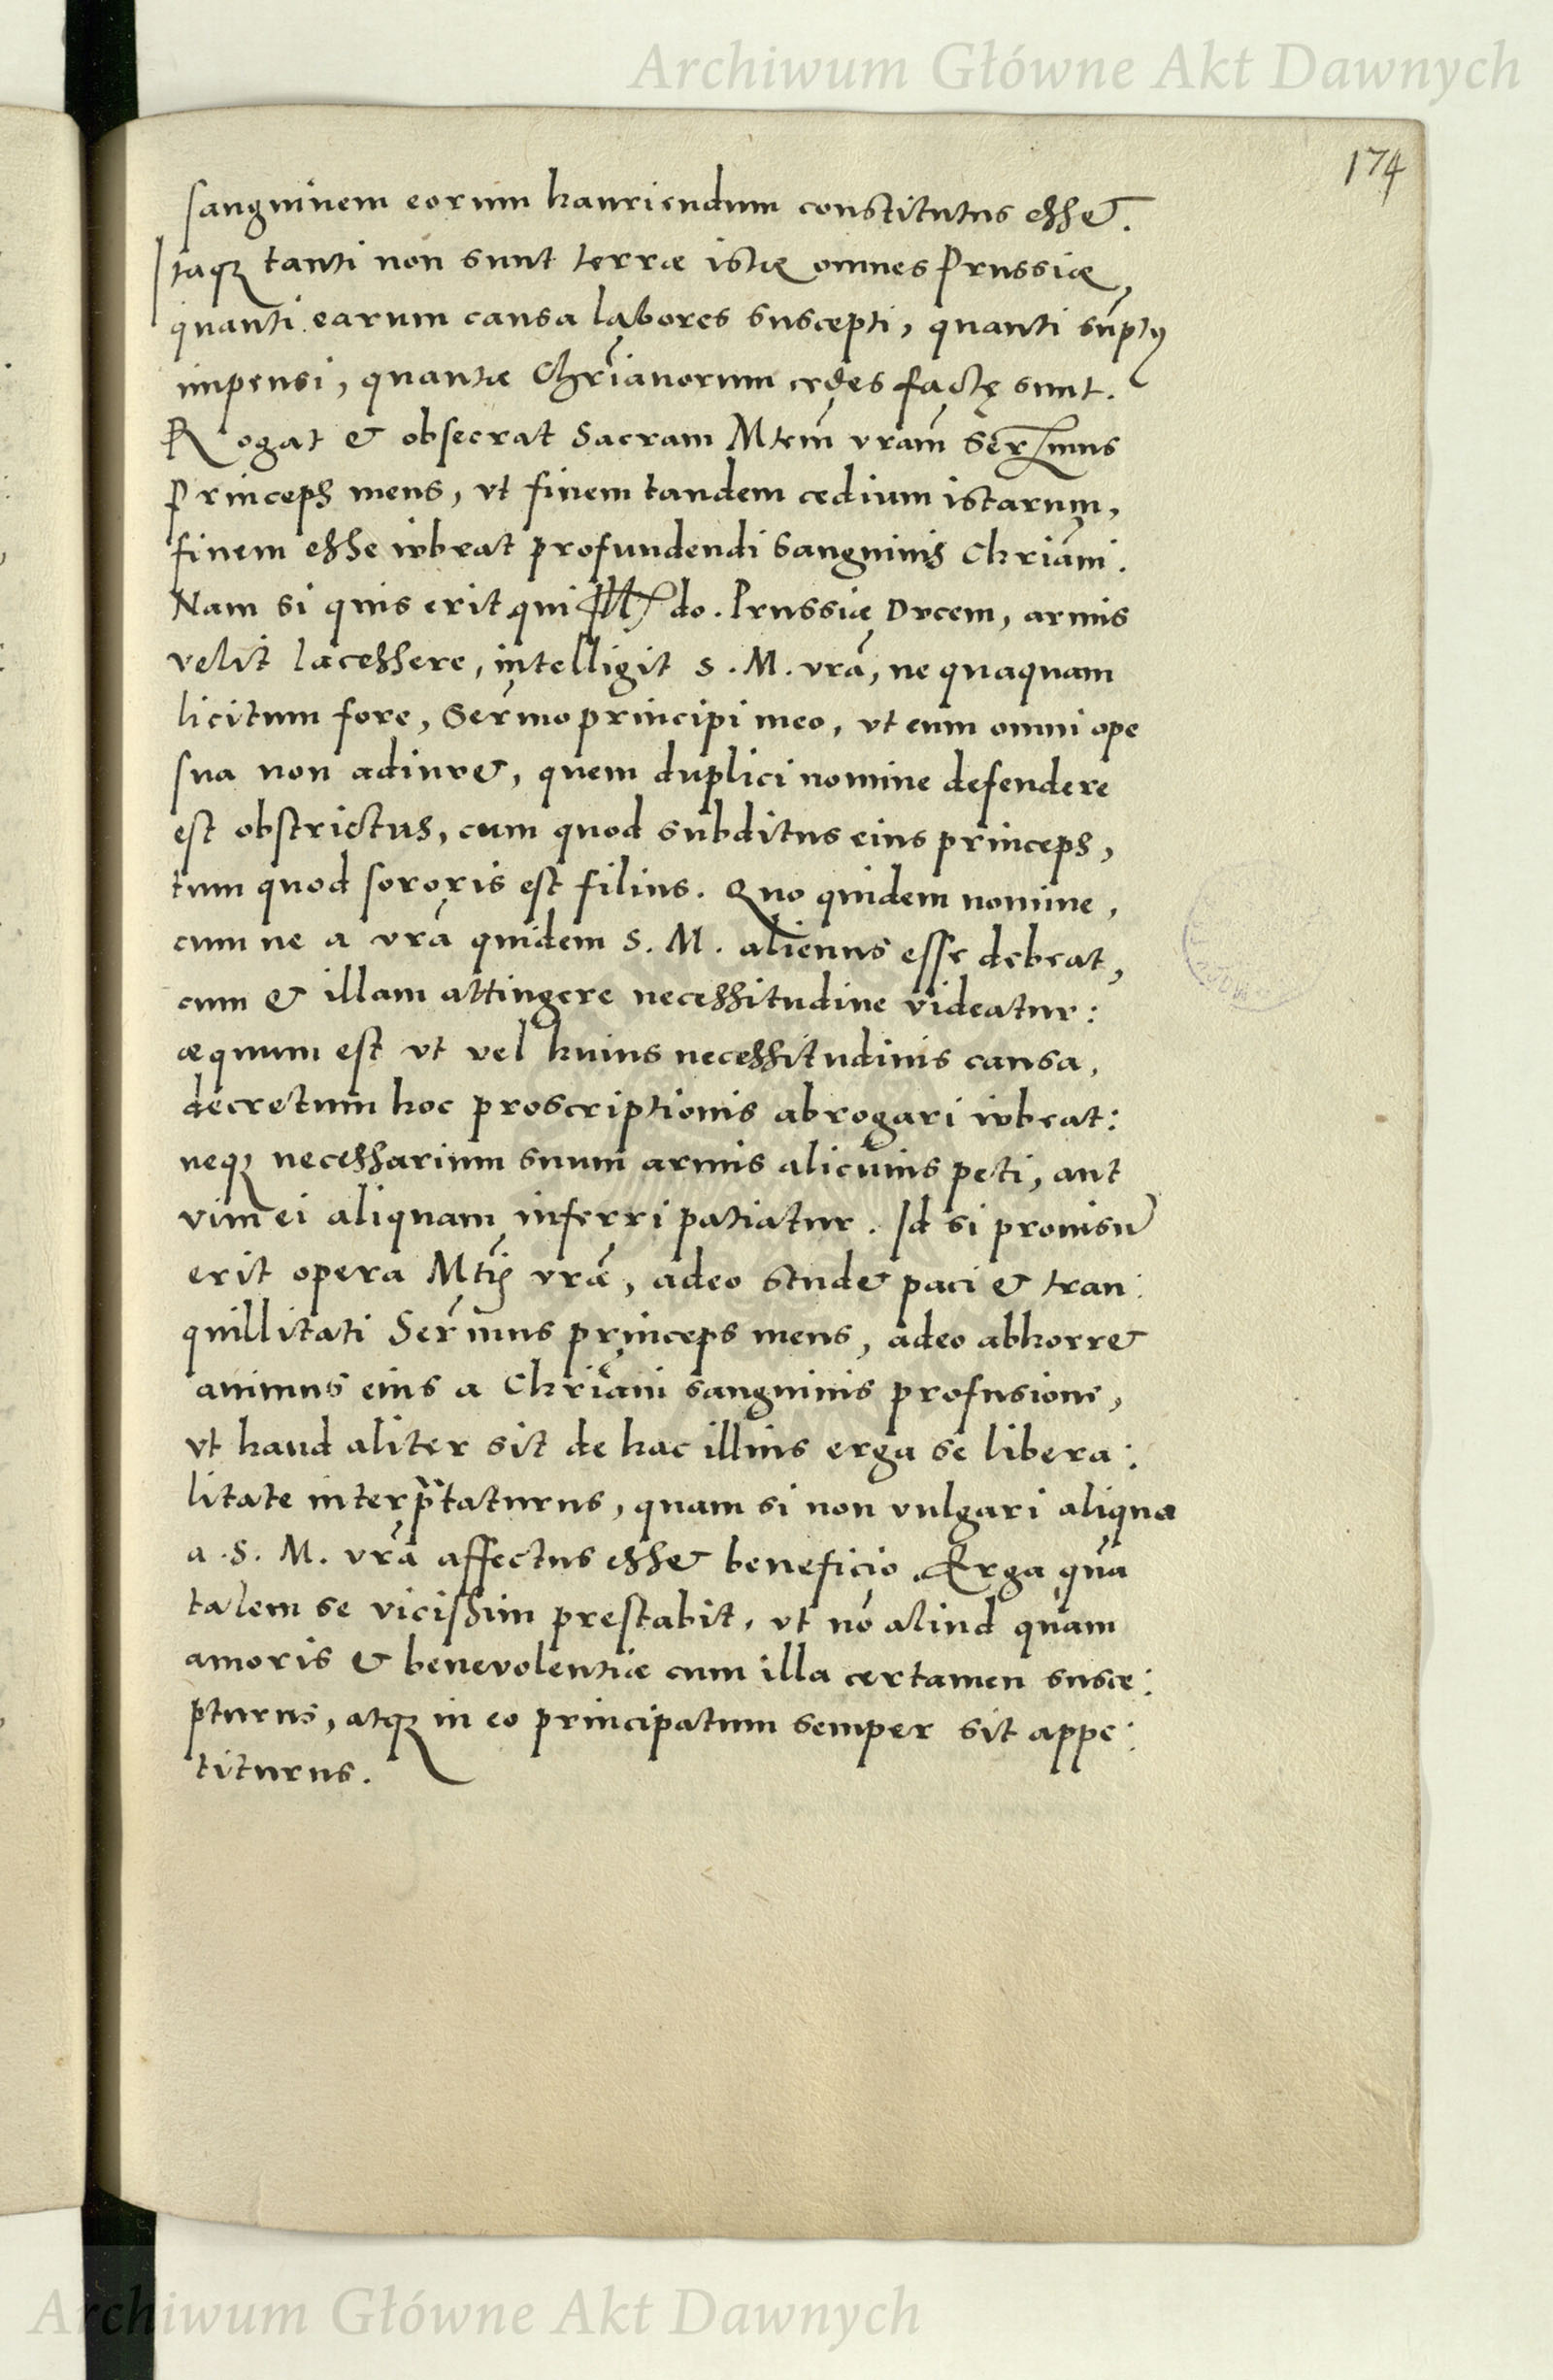 Archiwum Główne Akt Dawnych
174
sanguinem eorum hauriendum constitutus esset.
Itaq; tanti non sunt terræ istæ omnes Prussiæ,
quanti earum causa labores suscepti, quanti sūptus
impensi, quantæ Chrianorum cędes factę sunt.
Rogat & obsecrat Sacram Mtem vram Sermus
Princeps meus, vt finem tandem cædium istarum,
finem esse iubeat profundendi sanguinis Chriani.
Nam si quis erit qui Ill. do. Prussiæ Ducem, armis
velit lacessere, intelligit S. M. vra, ne quaquam
licitum fore, Sermo principi meo, vt eum omni ope
sua non adiuvet, quem duplici nomine defendere
est obstrictus, cum quod subditus eius princeps,
tum quod sororis est filius. Quo quidem nomine,
cum ne a vra quidem S. M. alienus esse debeat,
cum & illam attingere necessitudine videatur:
æquum est vt vel huius necessitudinis causa,
decretum hoc proscriptionis abrogari iubeat:
neq; necessarium suum armis alicuius peti, aut
vim ei aliquam inferri patiatur. Id si prouisū
erit opera Mtis vræ, adeo studet paci & tran:
quillitati Sermus princeps meus, adeo abhorret
animus eius a Chriani sanguinis profusione,
vt haud aliter sit de hac illius erga se libera:
litate interprtaturus, quam si non vulgari aliquo
a S. M. vra affectus esset beneficio. Erga quā
talem se vicissim prestabit, vt nō aliud quam
amoris & benevolentiæ cum illa certamen susce:
pturus, atq; in eo principatum semper sit appe:
titurus.
Archiwum Główne Akt Dawnych